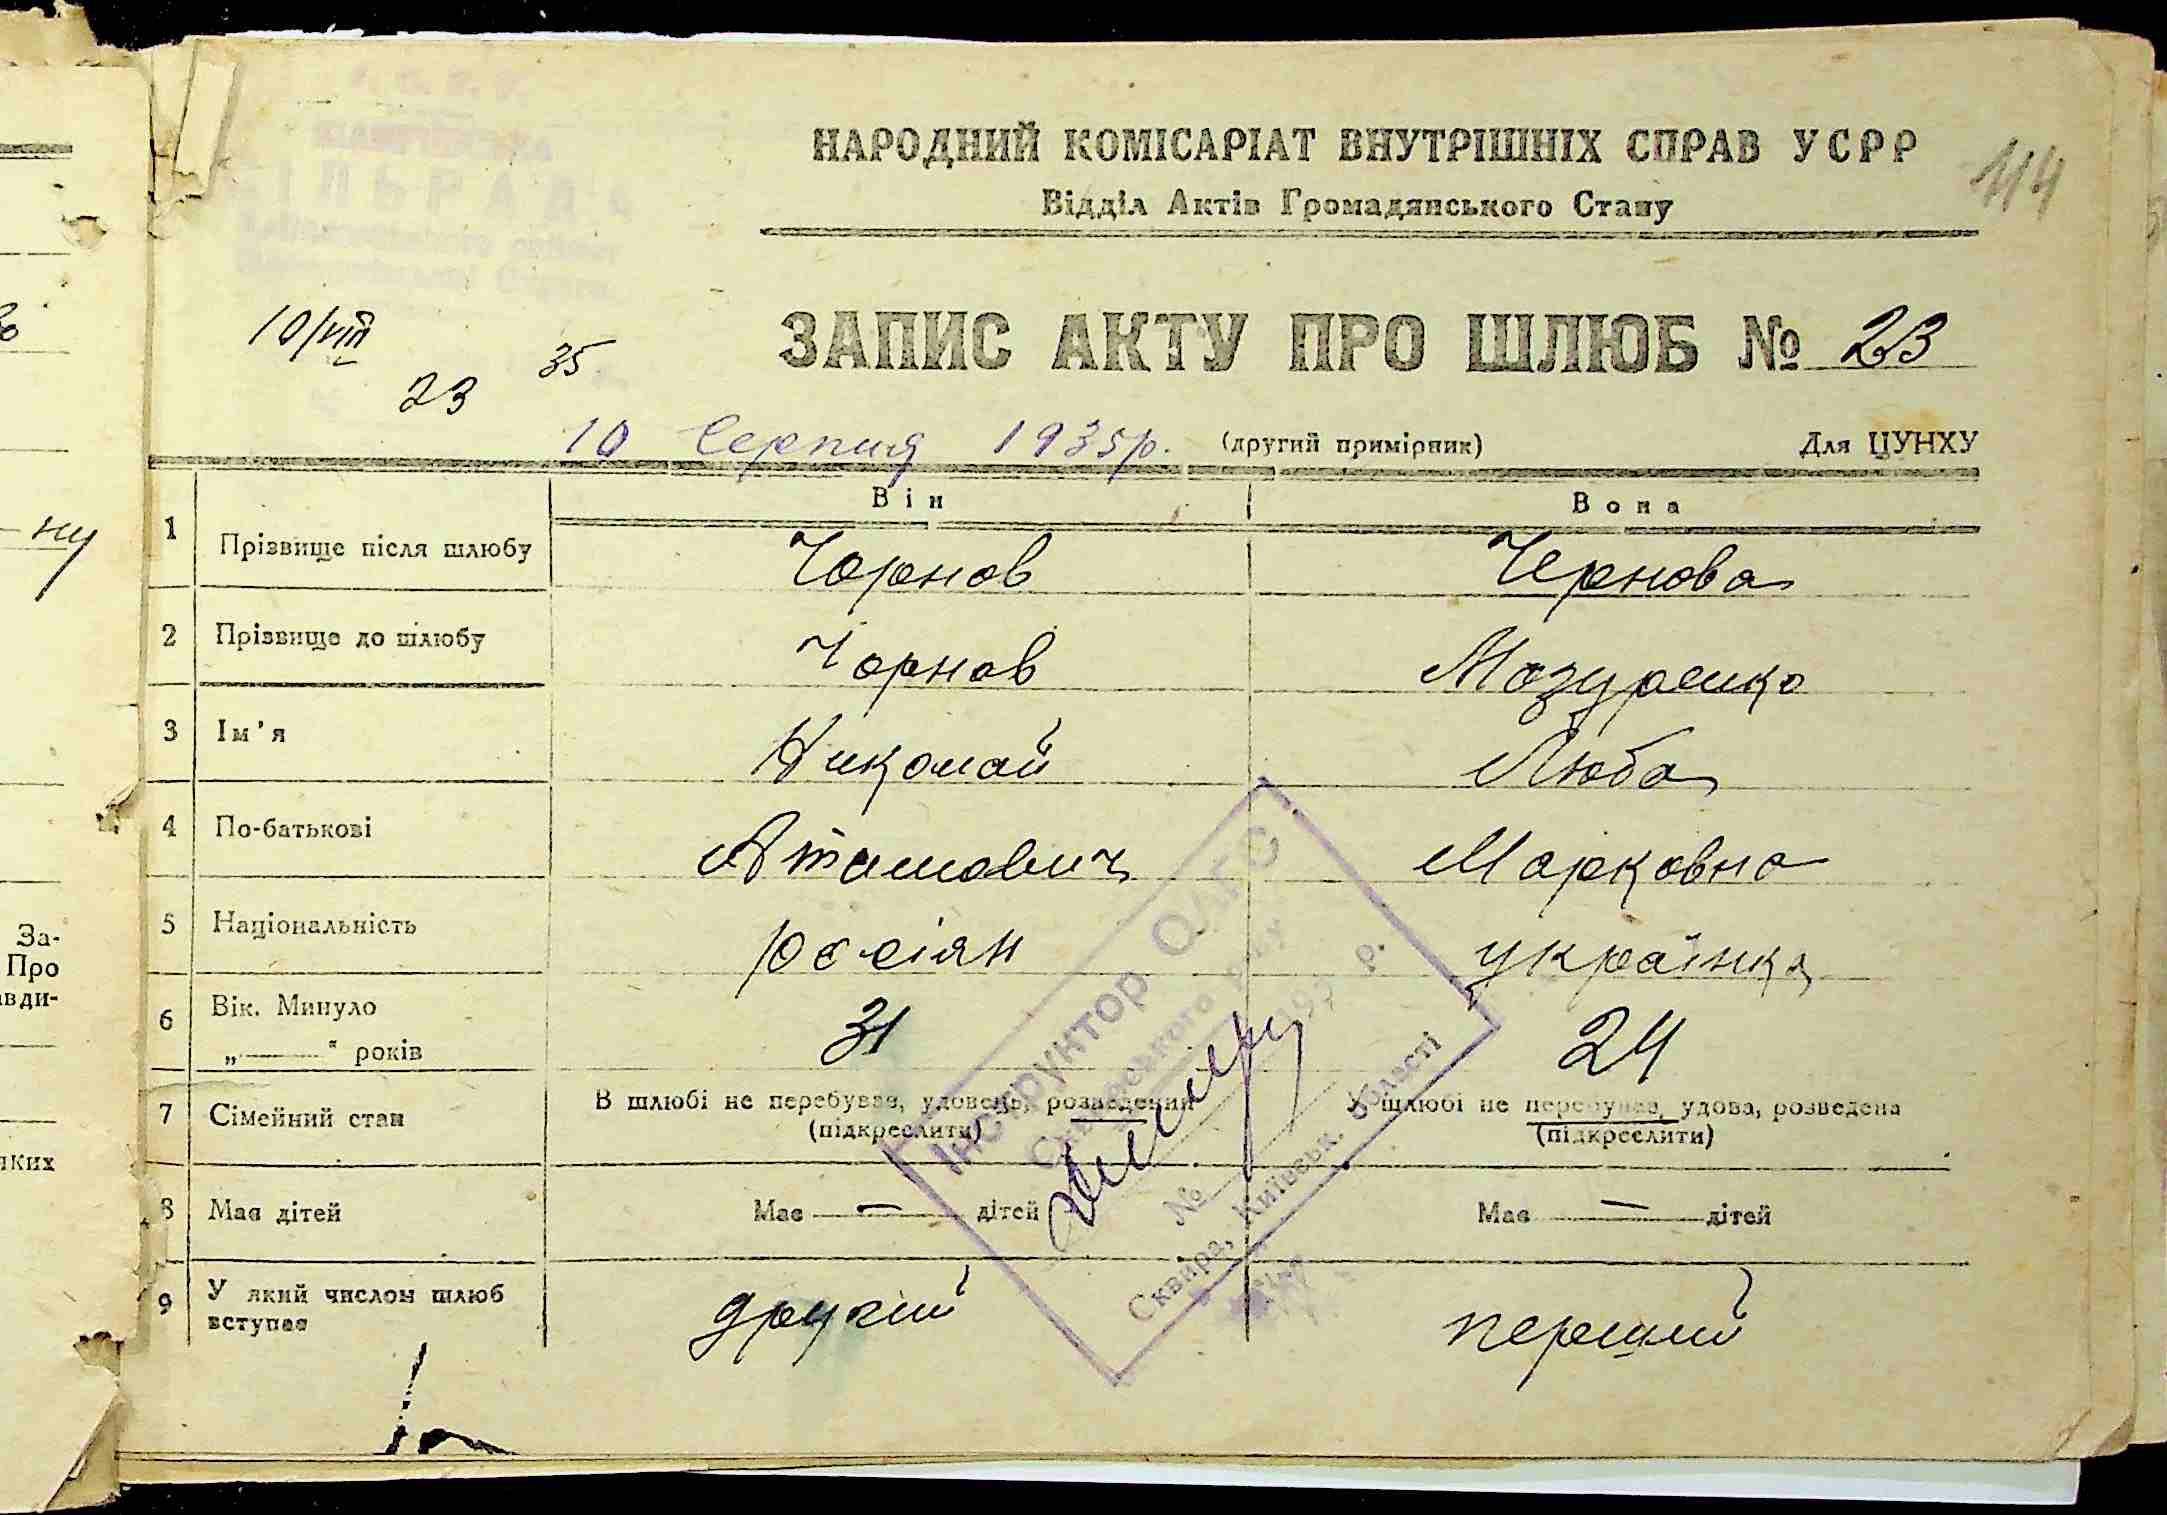 НАРОДНИЙ КОМІСАРІАТ ВНУТРІШНІХ СПРАВ УСРР
114
Відділ Актів Громадянського Стану
10/VIII 35
23
ЗАПИС АКТУ ПРО ШЛЮБ № 23
10 Серпня 1935р. (другий примірник) Для ЦУНХУ
Він Вона
1 Прізвище після шлюбу Чорнов Чернова
2 Прізвище до шлюбу Чорнов Мазуренко
3 Ім'я Николай Люба
4 По-батькові Марковна
5 Національність россіян українка
6 Вік. Минуло
„——" років 31 24
7 Сімейний стан В шлюбі не перебував, удовець, розведений У шлюбі не перебувала, удова, розведена
(підкреслити) (підкреслити)
8 Має дітей Має — дітей Має — дітей
9 У який числом шлюб
вступає другий перший
Інструктор ОАГС
№
Сквира, Київськ. області
ну
За-
Про
вди-
яких